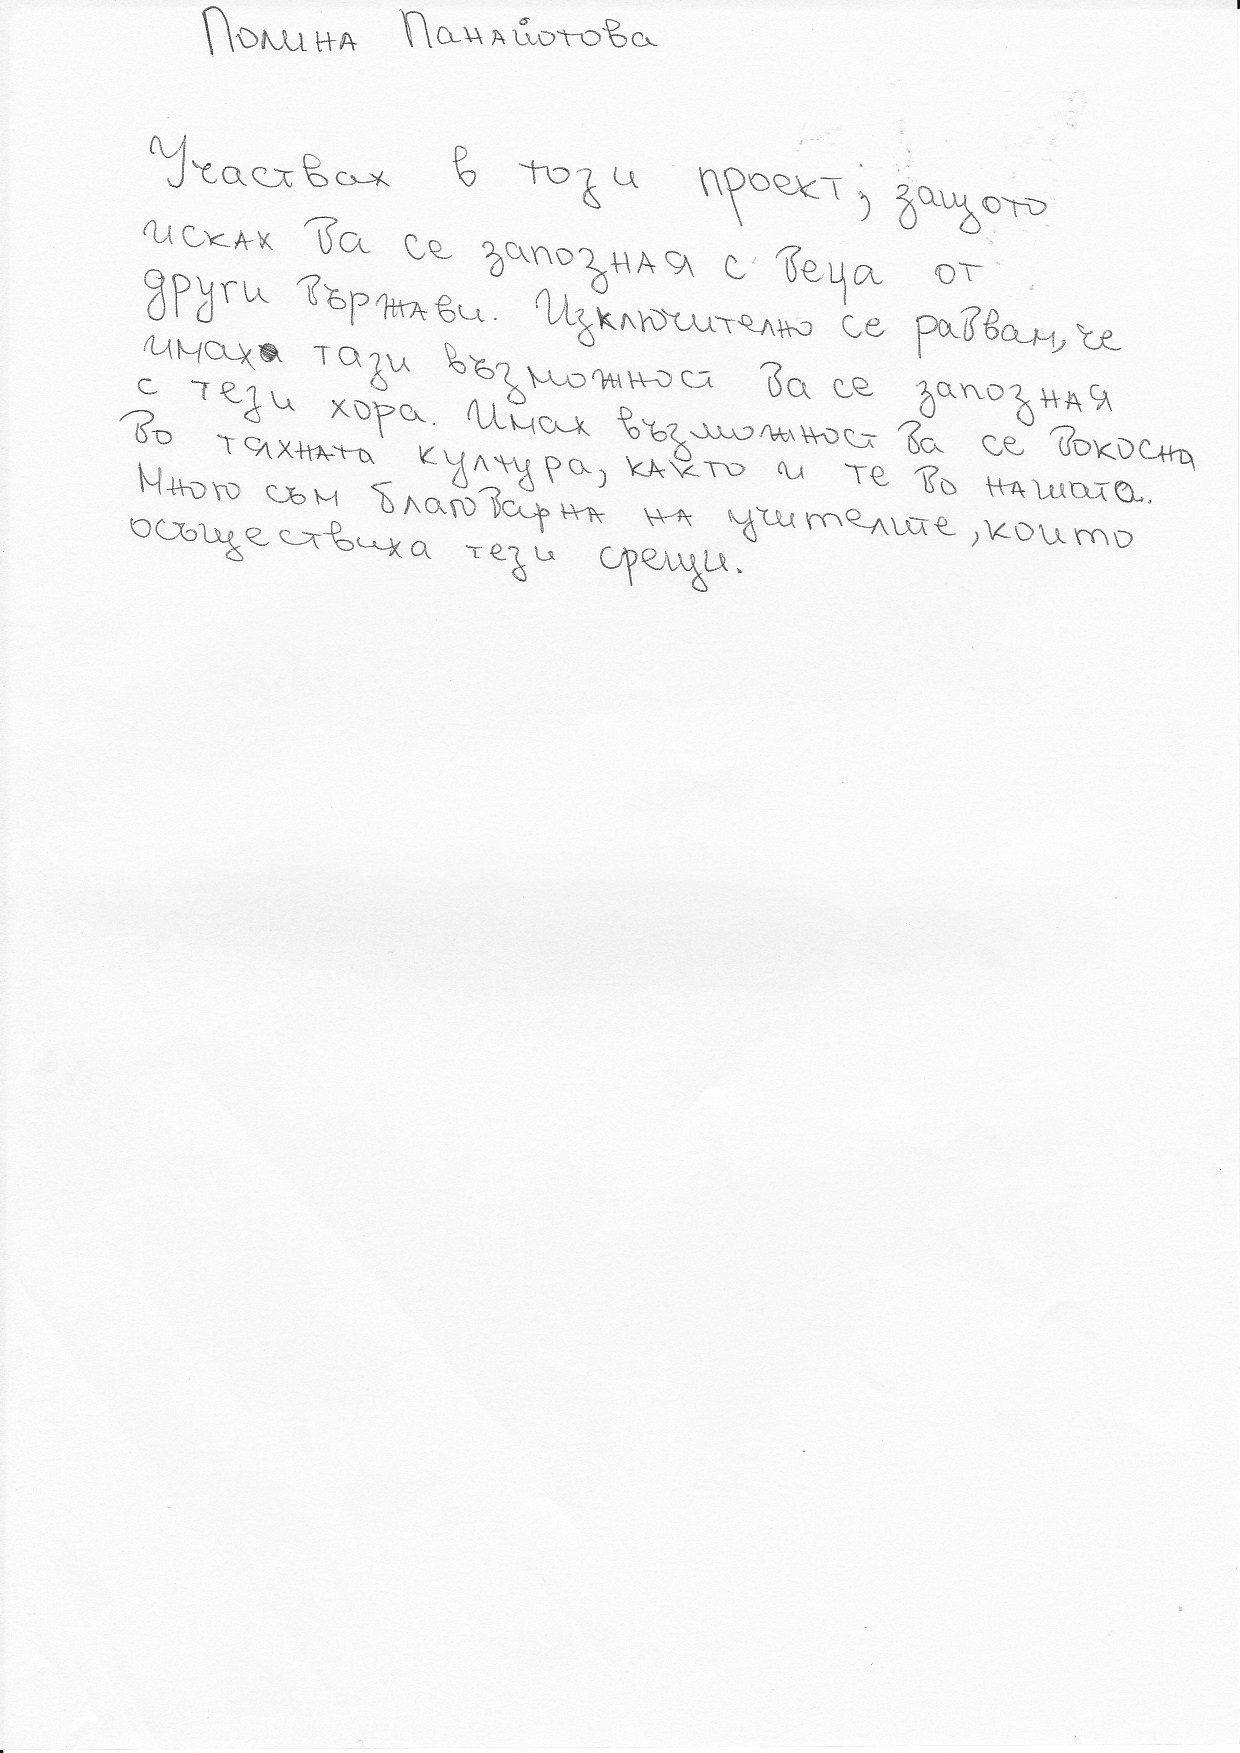 Полина Панайотова
Участвах в този проект, защото
исках да се запозная с деца от
други държави. Изключително се радвам, че
имах тази възможност да се запозная
с тези хора. Имах възможност да се докосна
до тяхната култура, както и те до нашата.
Много съм благодарна на учителите, които
осъществиха тези срещи.